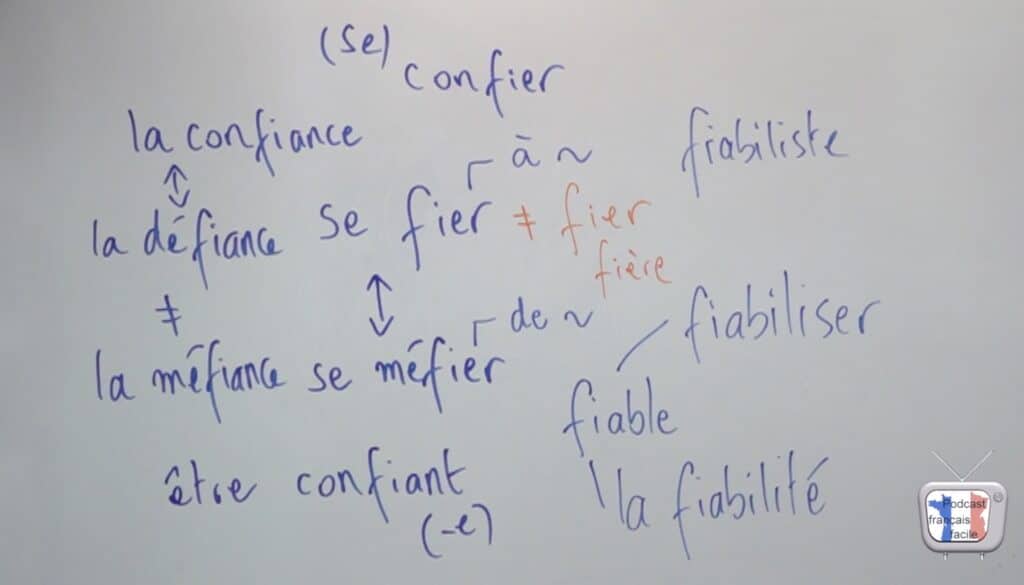 (se) confier
la confiance
↕
la défiance
≠
la méfiance
se fier à ~
↕
se méfier de ~
≠ fier
fière
être confiant
(-e)
fiabiliste
fiabiliser
fiable
la fiabilité
Podcast
français
facile